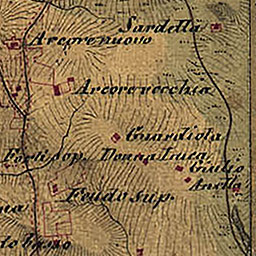 Sardella
Arcore nuovo
Arcore vecchia
Guardiola
Fonti sop. Donna Luca
Giulio
Anello
Feudo sup.